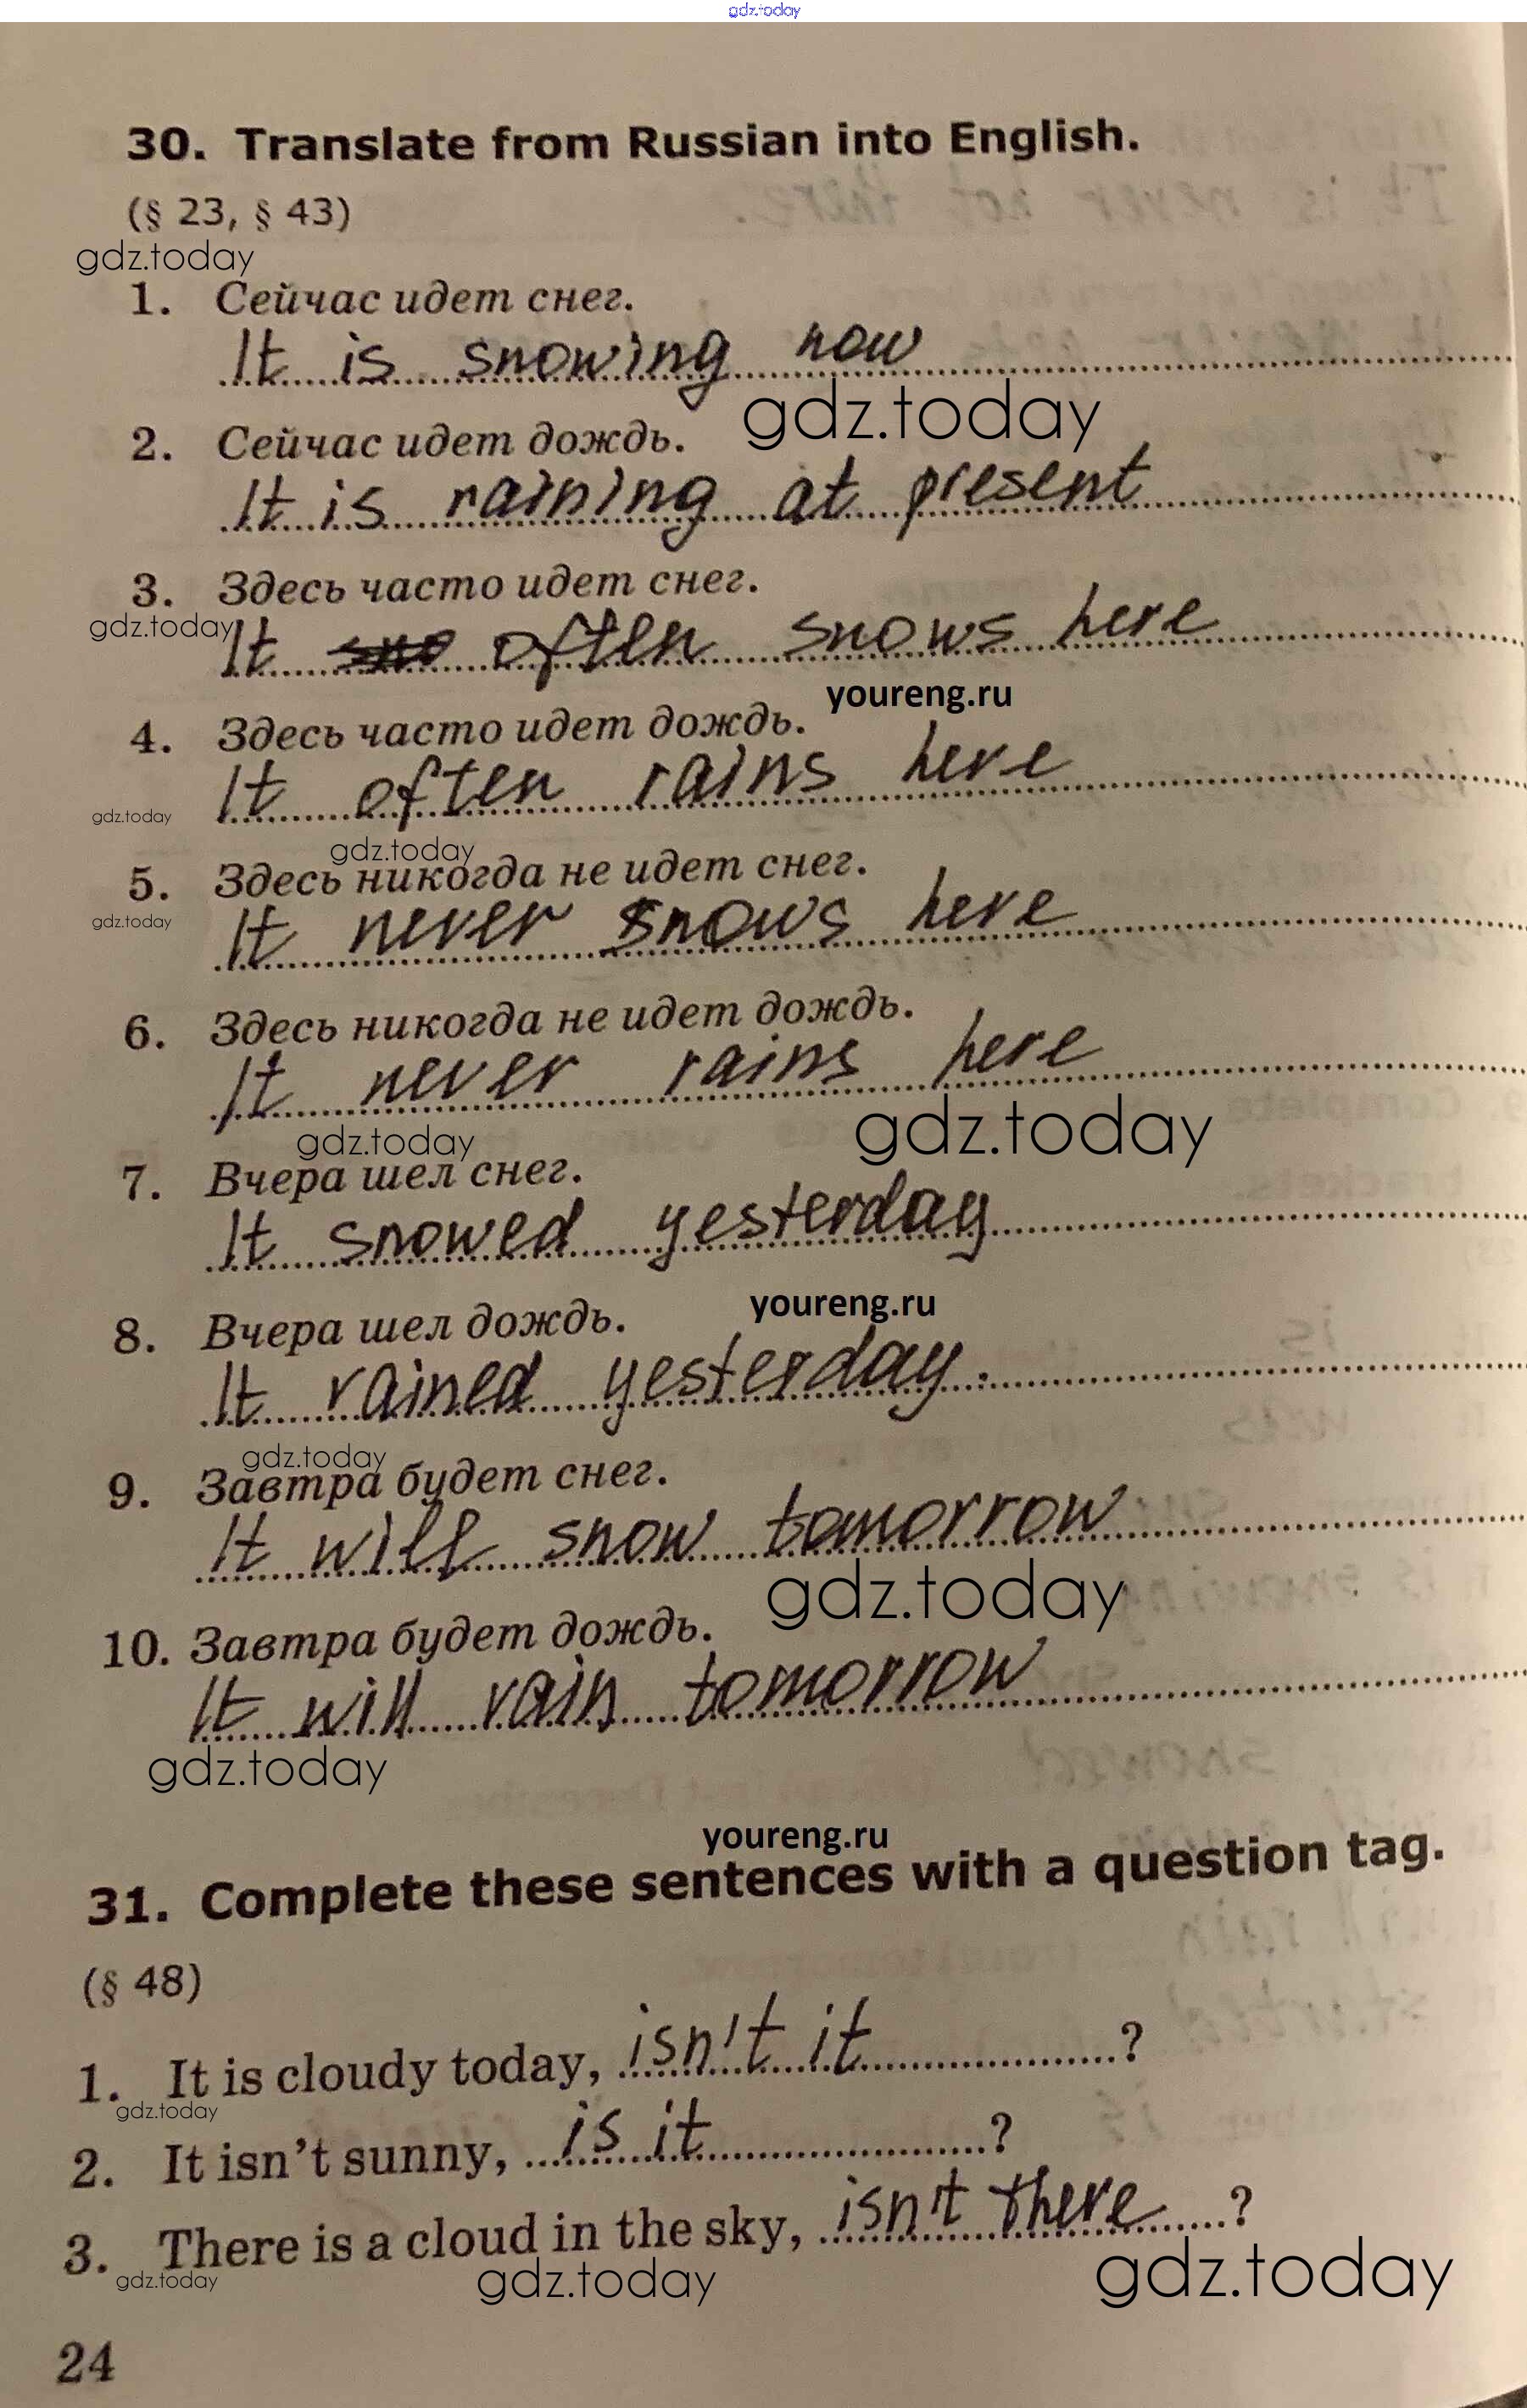 gdz.today
30. Translate from Russian into English.
(§ 23, § 43)
gdz.today
1. Сейчас идет снег.
It is snowing now
gdz.today
2. Сейчас идет дождь.
It is raining at present
3. Здесь часто идет снег.
gdz.today
It often snows here
youreng.ru
4. Здесь часто идет дождь.
It often rains here
gdz.today
gdz.today
5. Здесь никогда не идет снег.
gdz.today
It never snows here
6. Здесь никогда не идет дождь.
It never rains here
gdz.today
gdz.today
7. Вчера шел снег.
It snowed yesterday
youreng.ru
8. Вчера шел дождь.
It rained yesterday.
gdz.today
9. Завтра будет снег.
It will snow tomorrow
gdz.today
10. Завтра будет дождь.
It will rain tomorrow
gdz.today
youreng.ru
31. Complete these sentences with a question tag.
(§ 48)
1. It is cloudy today, isn't it ?
gdz.today
2. It isn't sunny, is it ?
3. There is a cloud in the sky, isn't there ?
gdz.today
gdz.today
gdz.today
24